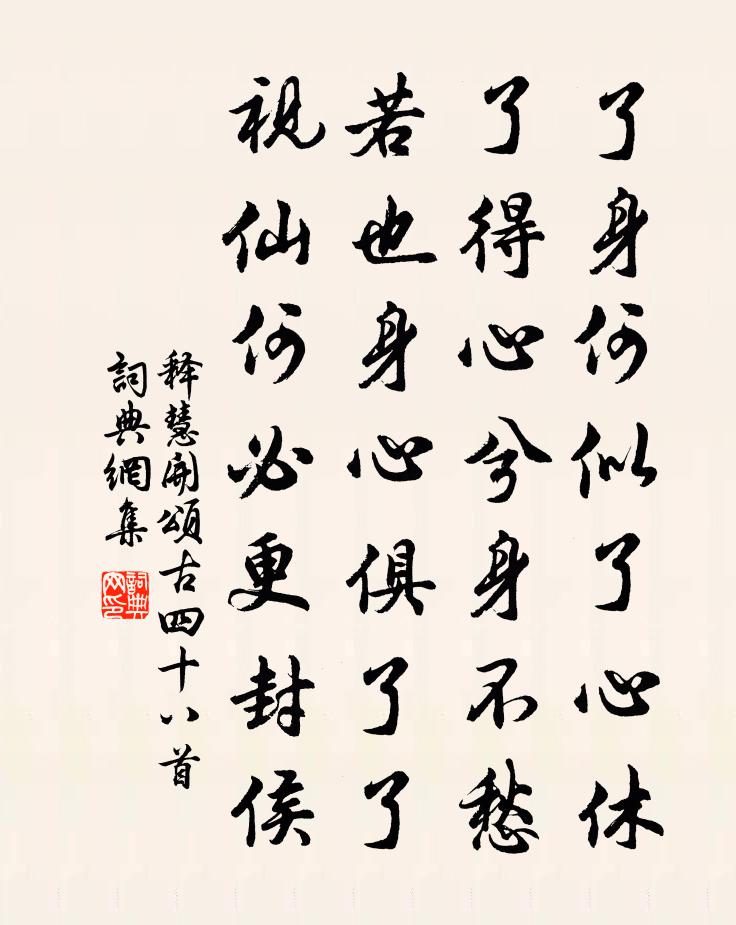 了身何似了心休
了得心兮身不愁
若也身心俱了了
視仙何必更封侯
释慧開頌古四十八首
詞典網集
詞典网印